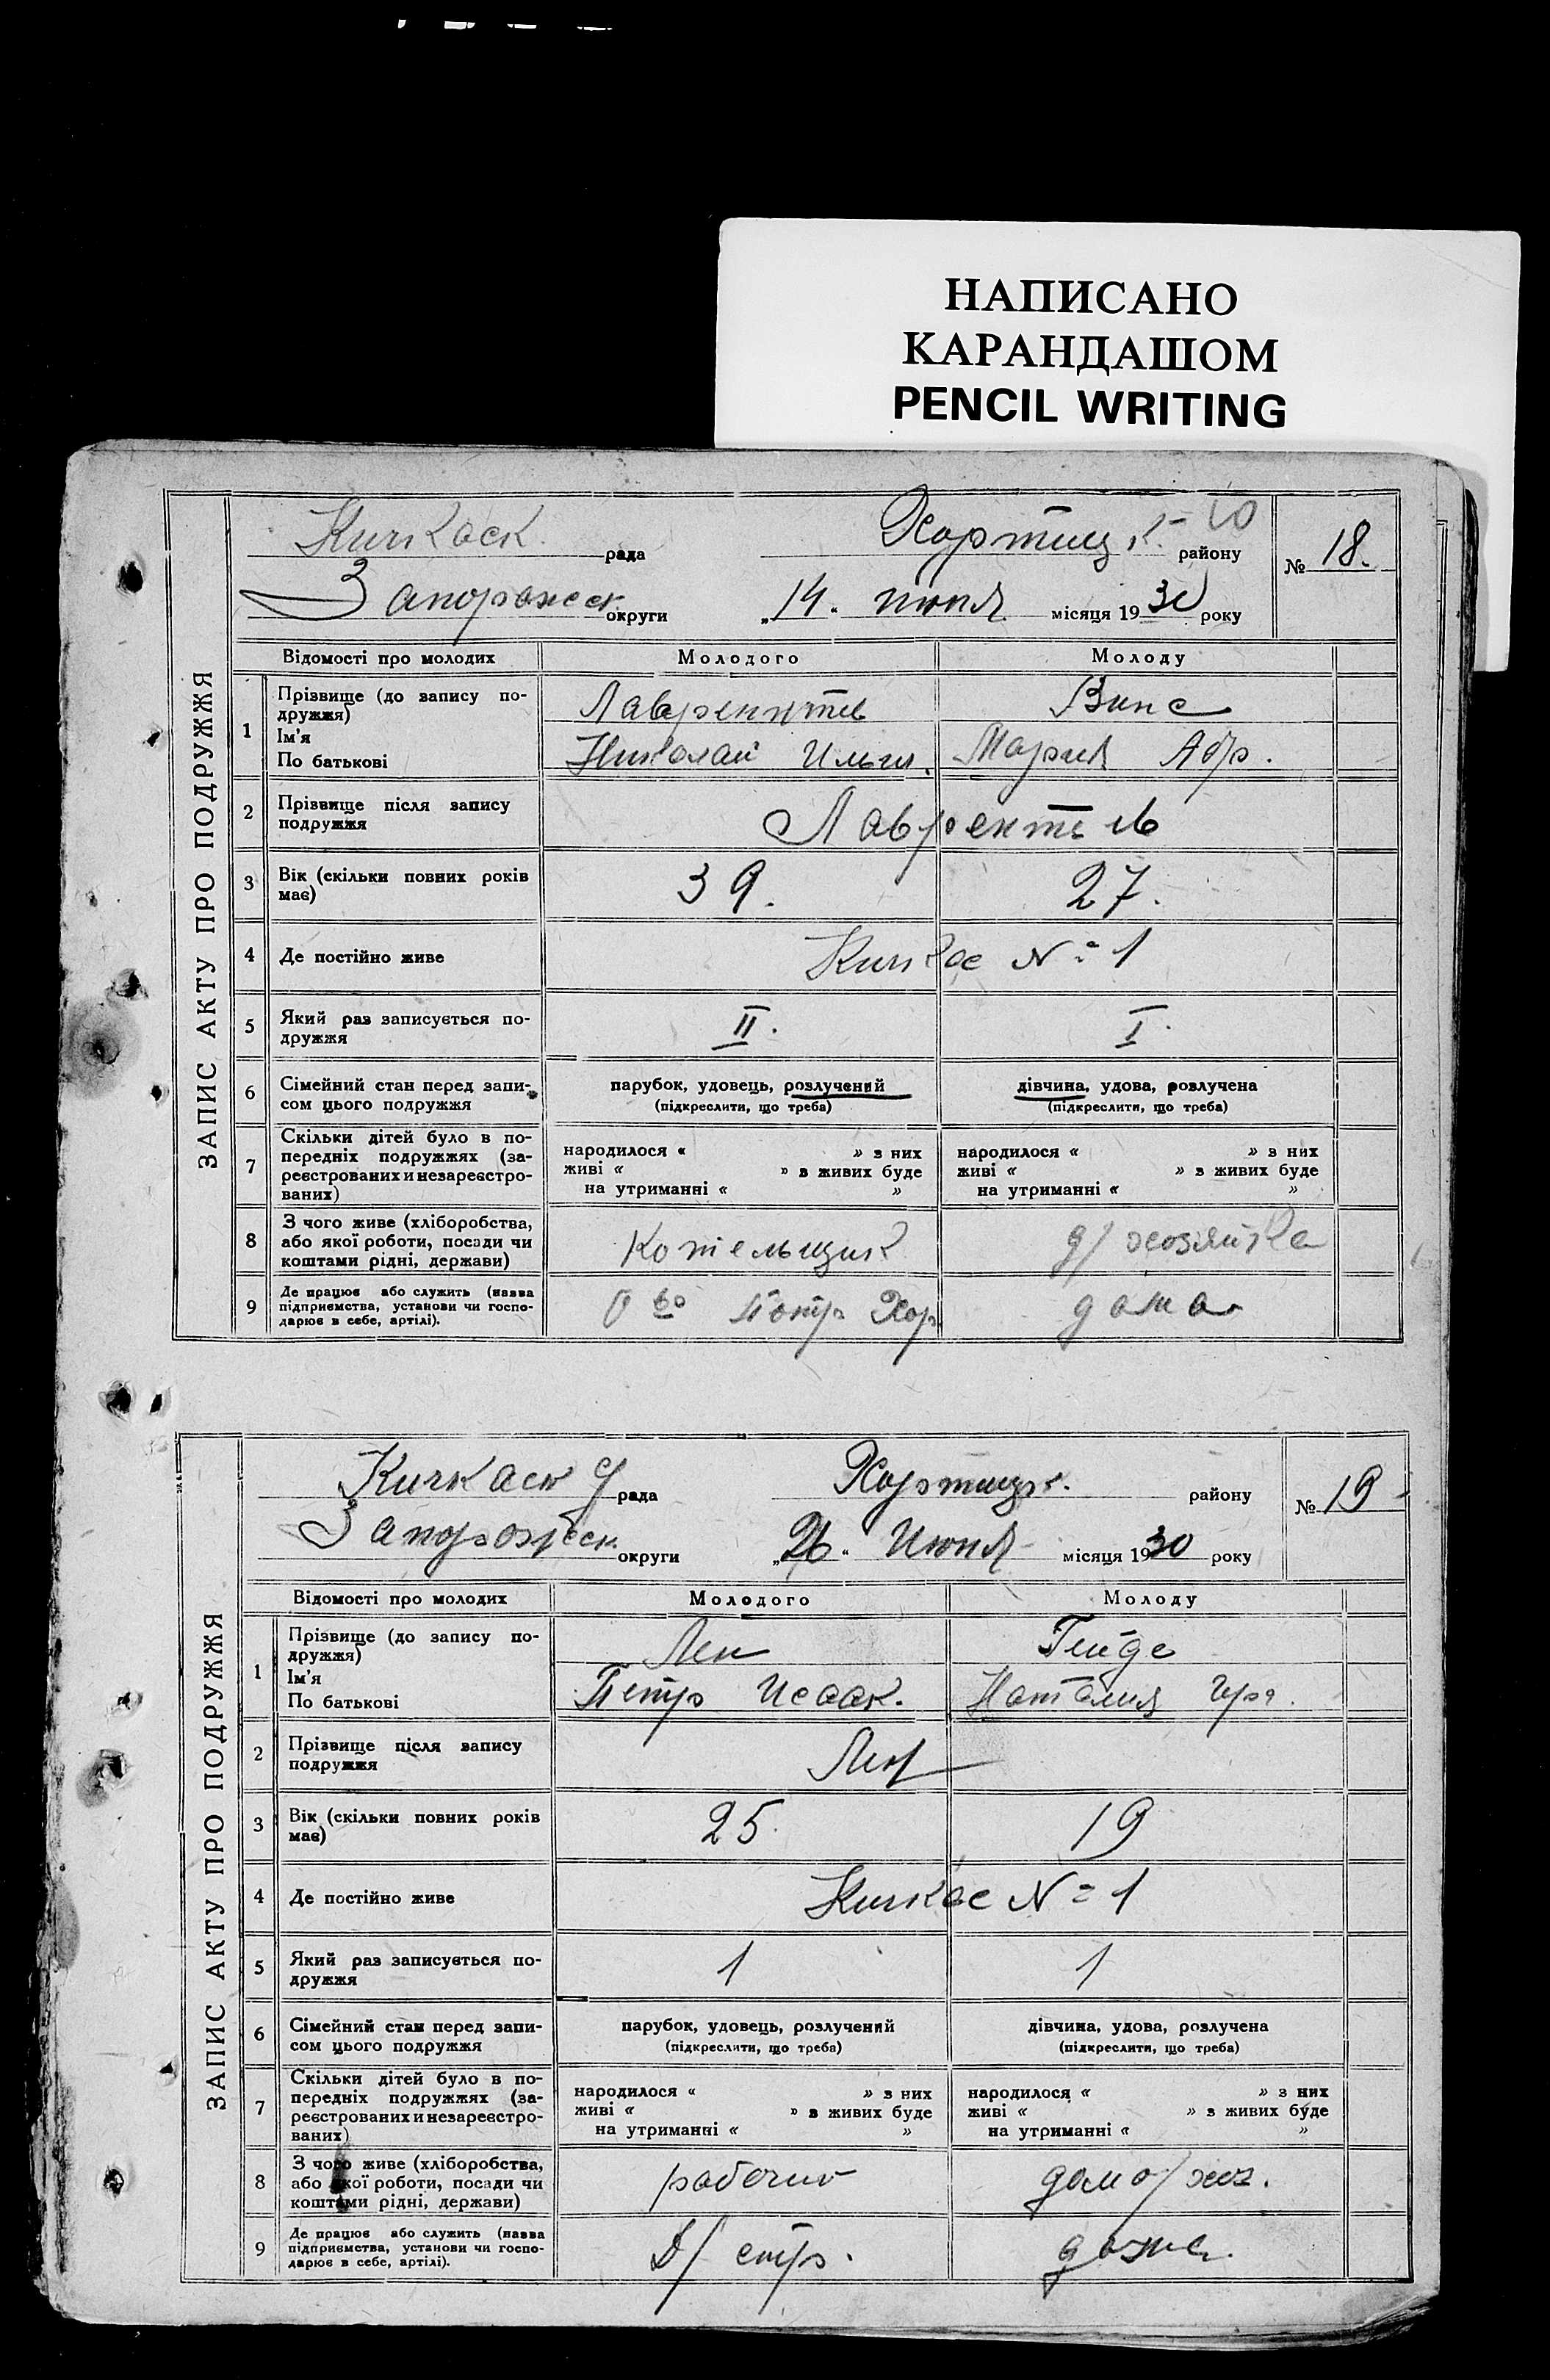 НАПИСАНО
КАРАНДАШОМ
PENCIL WRITING
ЗАПИС АКТУ ПРО ПОДРУЖЖЯ
Кичкаск. рада Хортицк. району № 18.
Запорожск. округи „14.“ июля місяця 1930 року
Відомості про молодих Молодого Молоду
1 Прізвище (до запису по-
дружжя)
Ім'я
По батькові
Лаврентьев Винс
Николай Ильич. Мария Абр.
2 Прізвище після запису
подружжя
Лаврентьев
3 Вік (скільки повних років
має)
39. 27.
4 Де постійно живе Кичкас № 1
5 Який раз записується по-
дружжя
II. I.
6 Сімейний стан перед запи-
сом цього подружжя
парубок, удовець, розлучений
(підкреслити, що треба)
дівчина, удова, розлучена
(підкреслити, що треба)
7 Скільки дітей було в по-
передніх подружжях (за-
реєстрованих и незареєстро-
ваних)
народилося « » з них
живі « » в живих буде
на утриманні « »
народилося « » з них
живі « » в живих буде
на утриманні « »
8 З чого живе (хліборобства,
або якої роботи, посади чи
коштами рідні, держави)
Котельщик д/хозяйка
9 Де працює або служить (назва
підприємства, установи чи госпо-
дарює в себе, артілі).
Хор. дома
ЗАПИС АКТУ ПРО ПОДРУЖЖЯ
Кичкаск рада Хортицк. району № 19
Запорожск. округи „26.“ Июня місяця 1930 року
Відомості про молодих Молодого Молоду
1 Прізвище (до запису по-
дружжя)
Ім'я
По батькові
Лен Гейде
Петр Исаак. Наталия
2 Прізвище після запису
подружжя
Лен
3 Вік (скільки повних років
має)
25. 19
4 Де постійно живе Кичкас № 1
5 Який раз записується по-
дружжя
1 1
6 Сімейний стан перед запи-
сом цього подружжя
парубок, удовець, розлучений
(підкреслити, що треба)
дівчина, удова, розлучена
(підкреслити, що треба)
7 Скільки дітей було в по-
передніх подружжях (за-
реєстрованих и незареєстро-
ваних)
народилося « » з них
живі « » в живих буде
на утриманні « »
народилося « » з них
живі « » в живих буде
на утриманні « »
8 З чого живе (хліборобства,
або якої роботи, посади чи
коштами рідні, держави)
рабочий домо/хоз.
9 Де працює або служить (назва
підприємства, установи чи госпо-
дарює в себе, артілі).
Д/стр. дома.